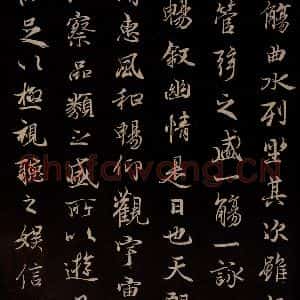 觴曲水列坐其次雖
管弦之盛一觴一詠
暢敘幽情是日也天朗
惠風和暢仰觀宇宙
察品類之盛所以遊
足以極視聽之娛信
Shufawang.CN